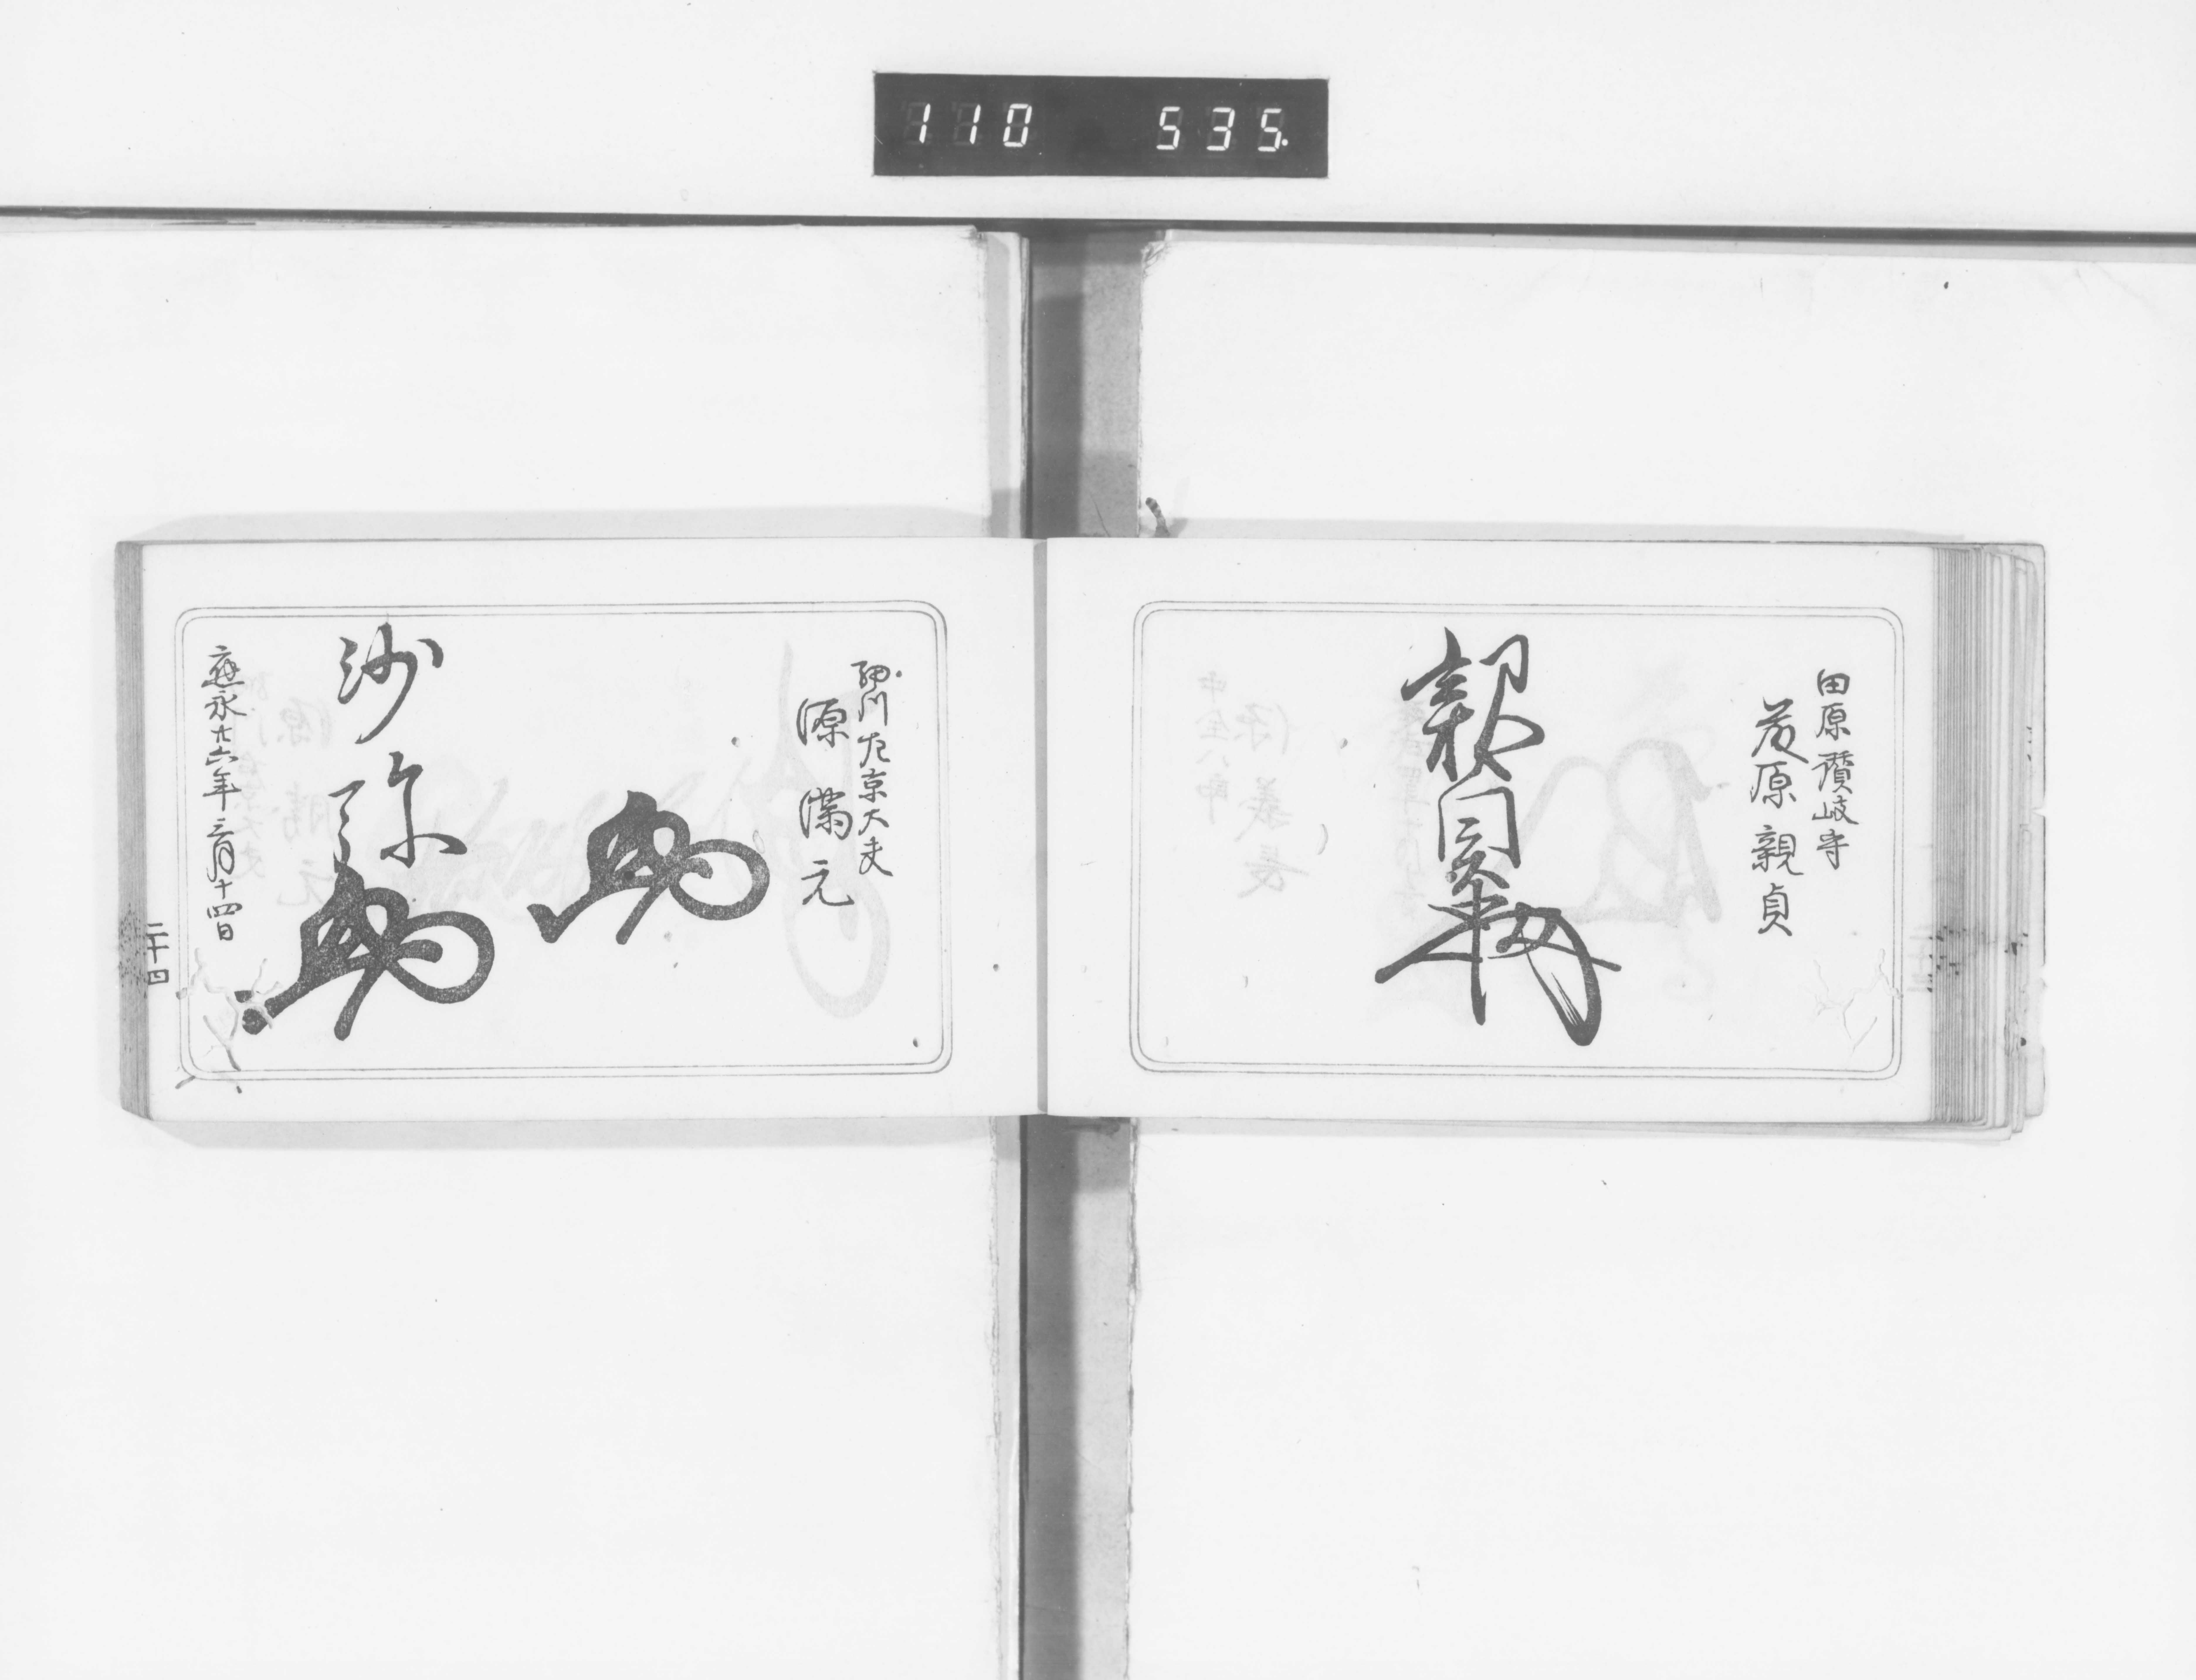 110 535
田原讃岐守
藤原親貞
親貞
細川左京大夫
源滿元
沙弥
應永廿六年二月十四日
二十四